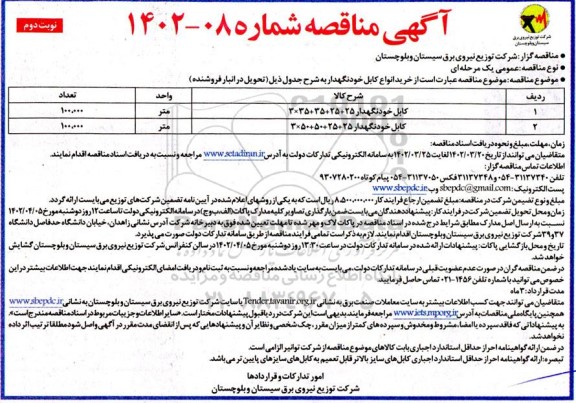 آگهی مناقصه شماره ۰۸-۱۴۰۲
نوبت دوم
شرکت توزیع نیروی برق
سیستان و بلوچستان
مناقصه گزار: شرکت توزیع نیروی برق سیستان و بلوچستان
نوع مناقصه: عمومی یک مرحله ای
موضوع مناقصه: موضوع مناقصه عبارت است از خرید انواع کابل خودنگهدار به شرح جدول ذیل (تحویل در انبار فروشنده)
ردیف شرح کالا واحد مقدار
۱ کابل خودنگهدار ۲۵+۲۵+۳۵+۳۵×۳ متر ۱۰۰,۰۰۰
۲ کابل خودنگهدار ۲۵+۲۵+۵۰+۵۰×۳ متر ۱۰۰,۰۰۰
زمان، مهلت، مبلغ و نحوه دریافت اسناد مناقصه:
متقاضیان می توانند از تاریخ ۱۴۰۲/۰۳/۲۰ لغایت ۱۴۰۲/۰۳/۲۵ به سامانه الکترونیکی تدارکات دولت به آدرس www.setadiran.ir مراجعه و نسبت به دریافت اسناد مناقصه اقدام نمایند.
اطلاعات تماس مناقصه گزار:
تلفن ۳۱۱۳۷۳۴۰-۰۵۴ و ۳۱۱۳۷۳۴۸ فکس ۳۱۱۳۷۰۵۰-۰۵۴ پیام کوتاه ۹۳۰۷۲۸۰۲۰۰
پست الکترونیک: sbepdc@gmail.com وب: www.sbepdc.ir
مبلغ و نوع تضمین شرکت در مناقصه: مبلغ تضمین ارجاع فرایند کار ۸,۵۰۰,۰۰۰,۰۰۰ ریال است که به یکی از روشهای اعلام شده در آیین نامه تضمین شرکت های توزیع می بایست ارائه گردد.
زمان و محل تحویل تضمین شرکت در فرایند کار: پیشنهاد دهندگان می بایست ضمن بارگذاری تصاویر کلیه مدارک پاکات (الف، ب و ج) در سامانه الکترونیکی دولت تا ساعت ۱۲ روز دوشنبه مورخ ۱۴۰۲/۰۴/۰۵
نسبت به ارسال اصل مدارک مطابق شرایط درج شده در اسناد مناقصه در پاکات لاک و مهر شده تا مهلت تعیین شده فوق به دبیرخانه شرکت به آدرس نشانی زاهدان، خیابان دانشگاه حدفاصل دانشگاه
۳۷ و ۳۹ شرکت توزیع نیروی برق سیستان و بلوچستان اقدام نمایند. لازم به ذکر است تمامی فرایند مناقصه از طریق سامانه تدارکات دولت صورت می پذیرد.
تاریخ و محل بازگشایی پاکات: پیشنهادات ارائه شده در سامانه تدارکات دولت در ساعت ۱۳:۳۰ روز دوشنبه مورخ ۱۴۰۲/۰۴/۰۵ در سالن کنفرانس شرکت توزیع نیروی برق سیستان و بلوچستان گشایش
خواهد شد.
در ضمن مناقصه گران در صورت عدم عضویت قبلی در سامانه تدارکات دولت، می بایست به سایت یاد شده مراجعه و نسبت به ثبت نام و دریافت امضای الکترونیکی اقدام نمایند جهت اطلاعات بیشتر در این
خصوص می توانید با شماره تلفن ۱۴۵۶-۰۲۱ تماس حاصل فرمایید.
مدت قرارداد: ۳ ماه
متقاضیان می توانند جهت کسب اطلاعات بیشتر به سایت معاملات صنعت برق به نشانی Tender.tavanir.org.ir یا سایت شرکت توزیع نیروی برق سیستان و بلوچستان به نشانی www.sbepdc.ir و
همچنین پایگاه ملی مناقصات به آدرس www.iets.mporg.ir مراجعه فرمایند. بدیهی است این شرکت در رد یا قبول پیشنهادات مختار است. سایر اطلاعات و جزییات مربوط در اسناد مناقصه مندرج است.
به پیشنهاداتی که فاقد سپرده یا امضاء، مشروط و مخدوش و سپرده های کمتر از میزان مقرر، چک شخصی و نظایر آن و پیشنهادهایی که پس از انقضای مدت مقرر در آگهی واصل شود مطلقا ترتیب اثر داده
نخواهد شد.
در ضمن ارائه گواهینامه احراز حداقل استاندارد اجباری بابت کالاهای موضوع مناقصه از شرکت توانیر الزامی است.
تبصره: ارائه گواهینامه احراز حداقل استاندارد اجباری کابل های سایز بالاتر قابل تعمیم به کابل های سایزهای پایین تر می باشد.
امور تدارکات و قراردادها
شرکت توزیع نیروی برق سیستان و بلوچستان